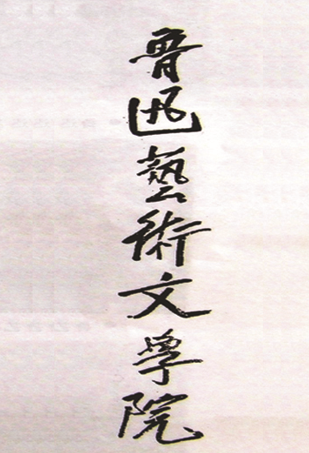 魯迅藝術文學院